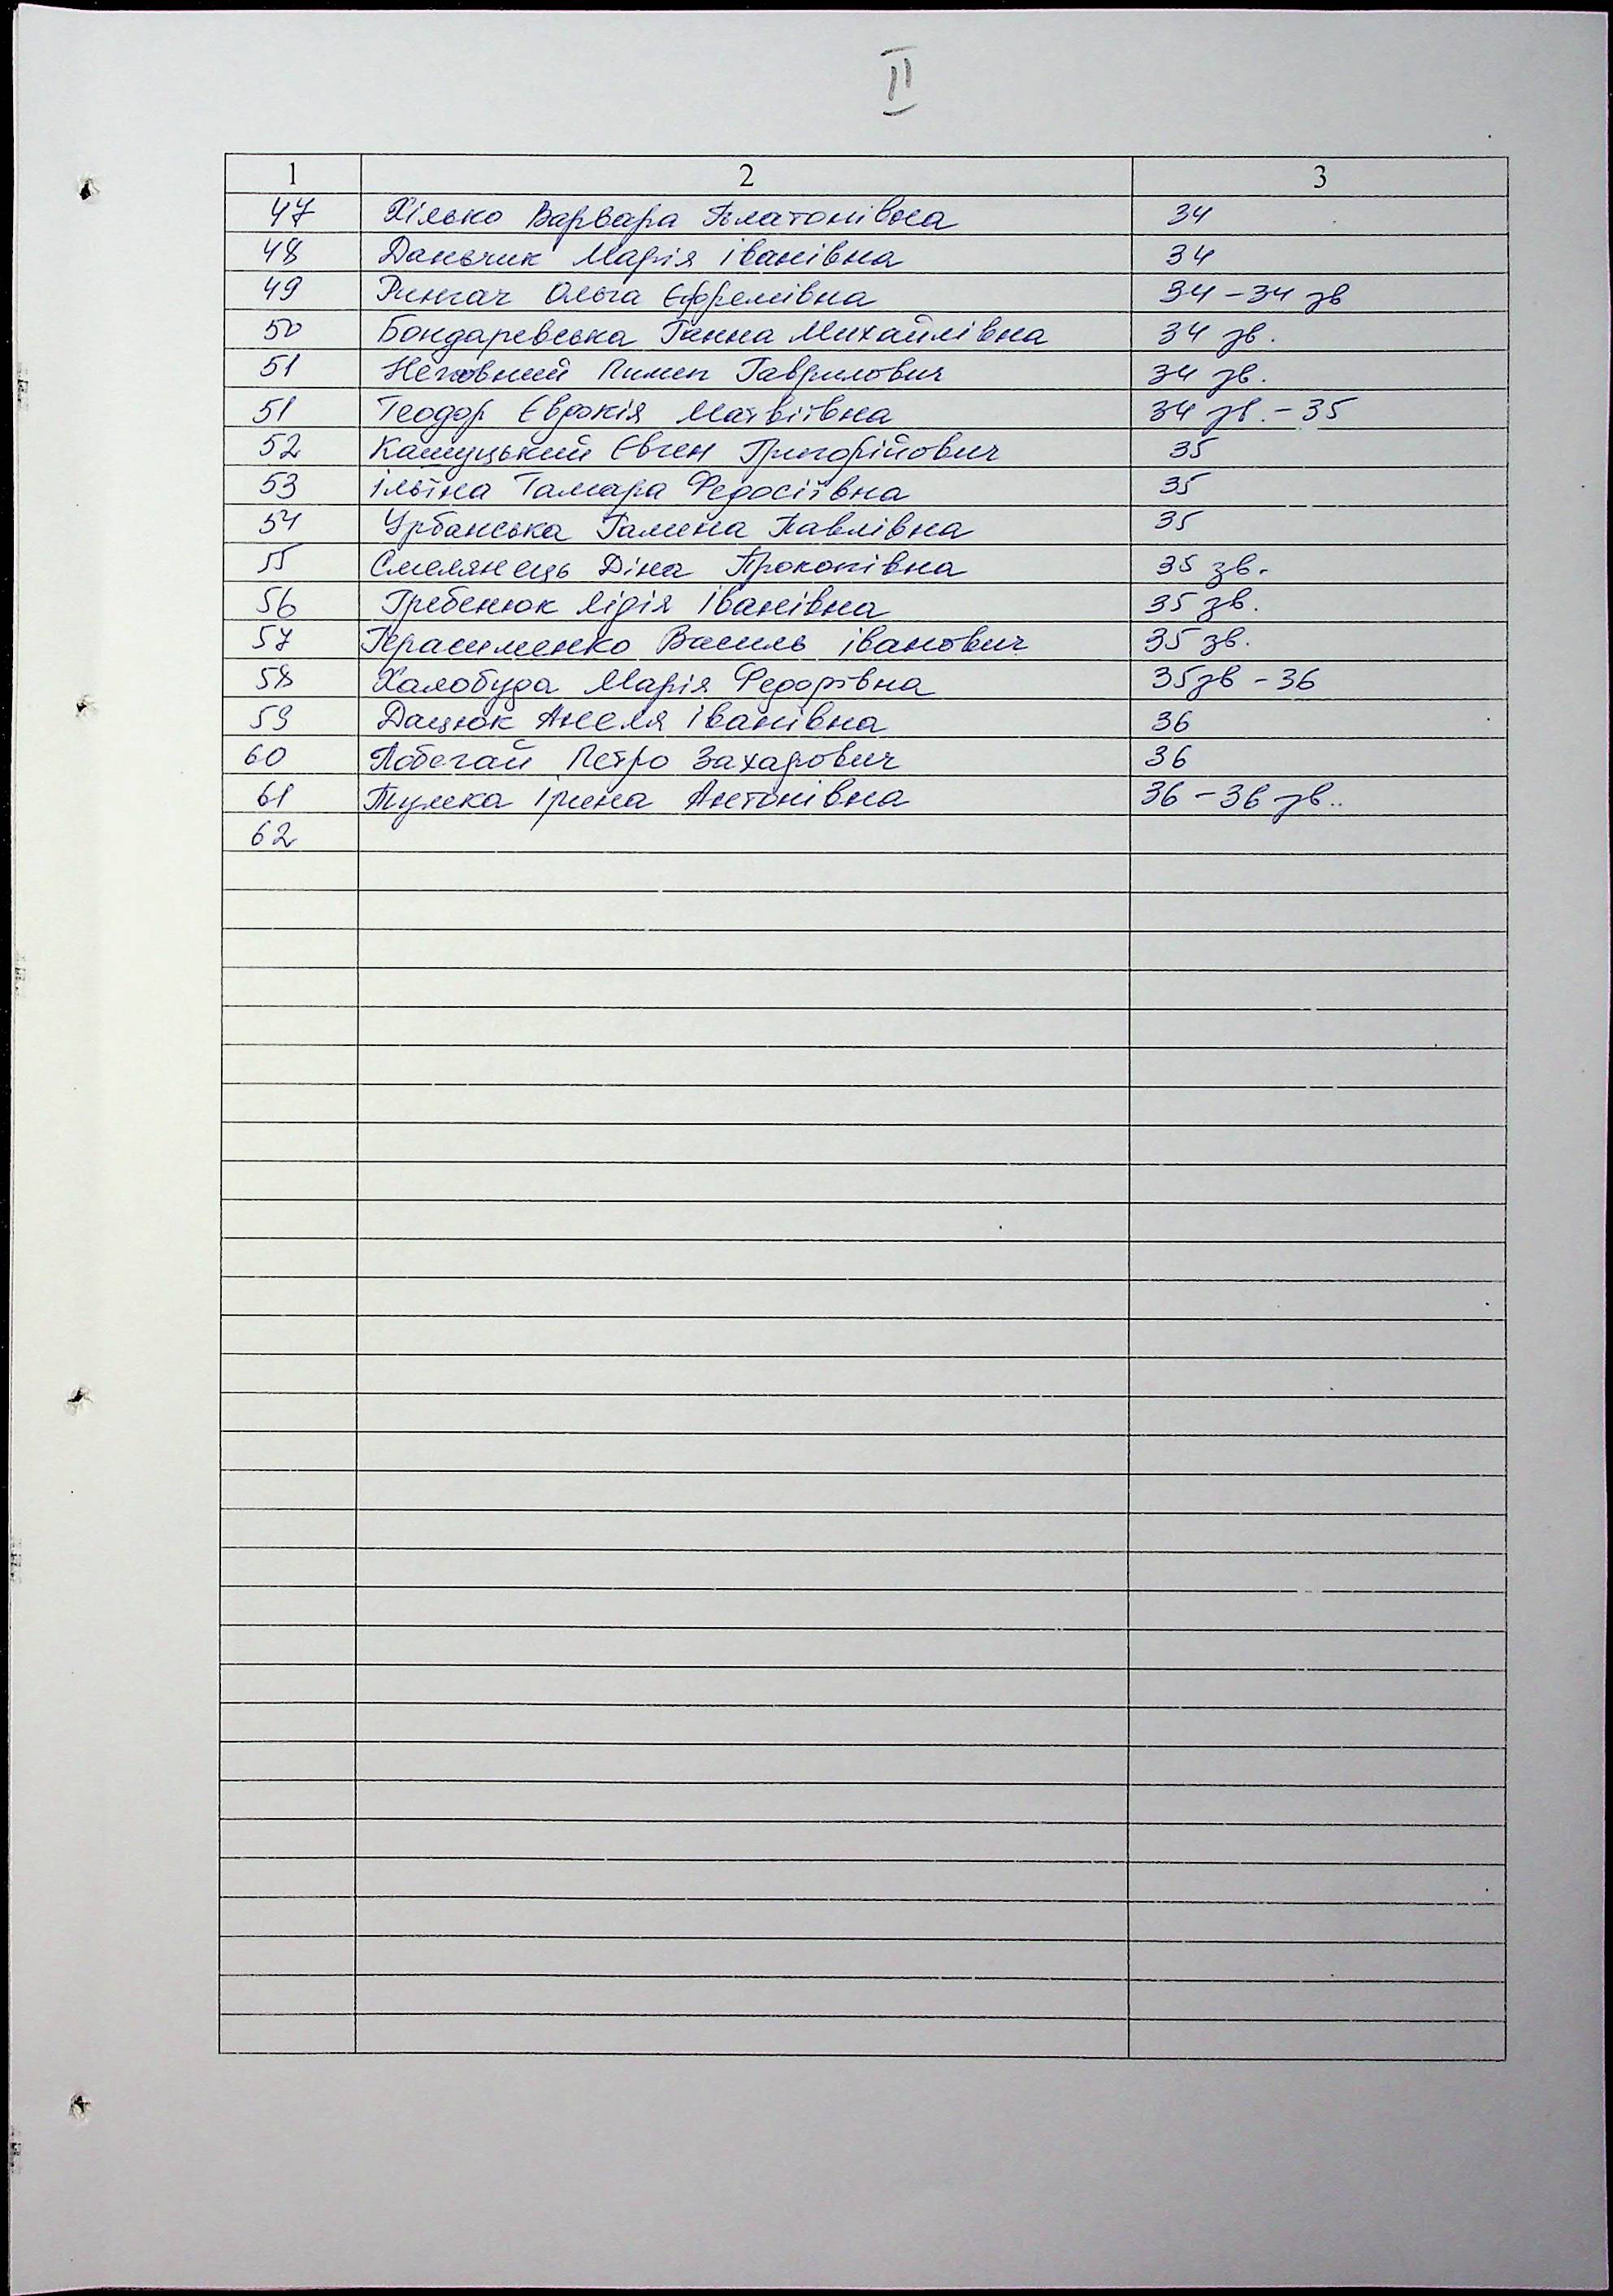 II
1 2 3
47 Хілько Варвара Платонівна 34
48 Даньчик Марія Іванівна 34
49 Рингач Ольга Єфремівна 34-34 зв
50 Бондаревська Ганна Михайлівна 34 зв.
51 Пимен Гаврилович 34 зв.
51 Теодор Євдокія Матвіївна 34 зв.-35
52 Євген Григорійович 35
53 Ільїна Тамара Федосіївна 35
54 Урбанська Галина Павлівна 35
55 Смелянець Діна Прокопівна 35 зв.
56 Гребенюк Лідія Іванівна 35 зв.
57 Герасименко Василь Іванович 35 зв.
58 Халобуда Марія Федорівна 35зв - 36
59 Дацюк Анеля Іванівна 36
60 Побегай Петро Захарович 36
61 Тумка Ірина Антонівна 36-36 зв..
62